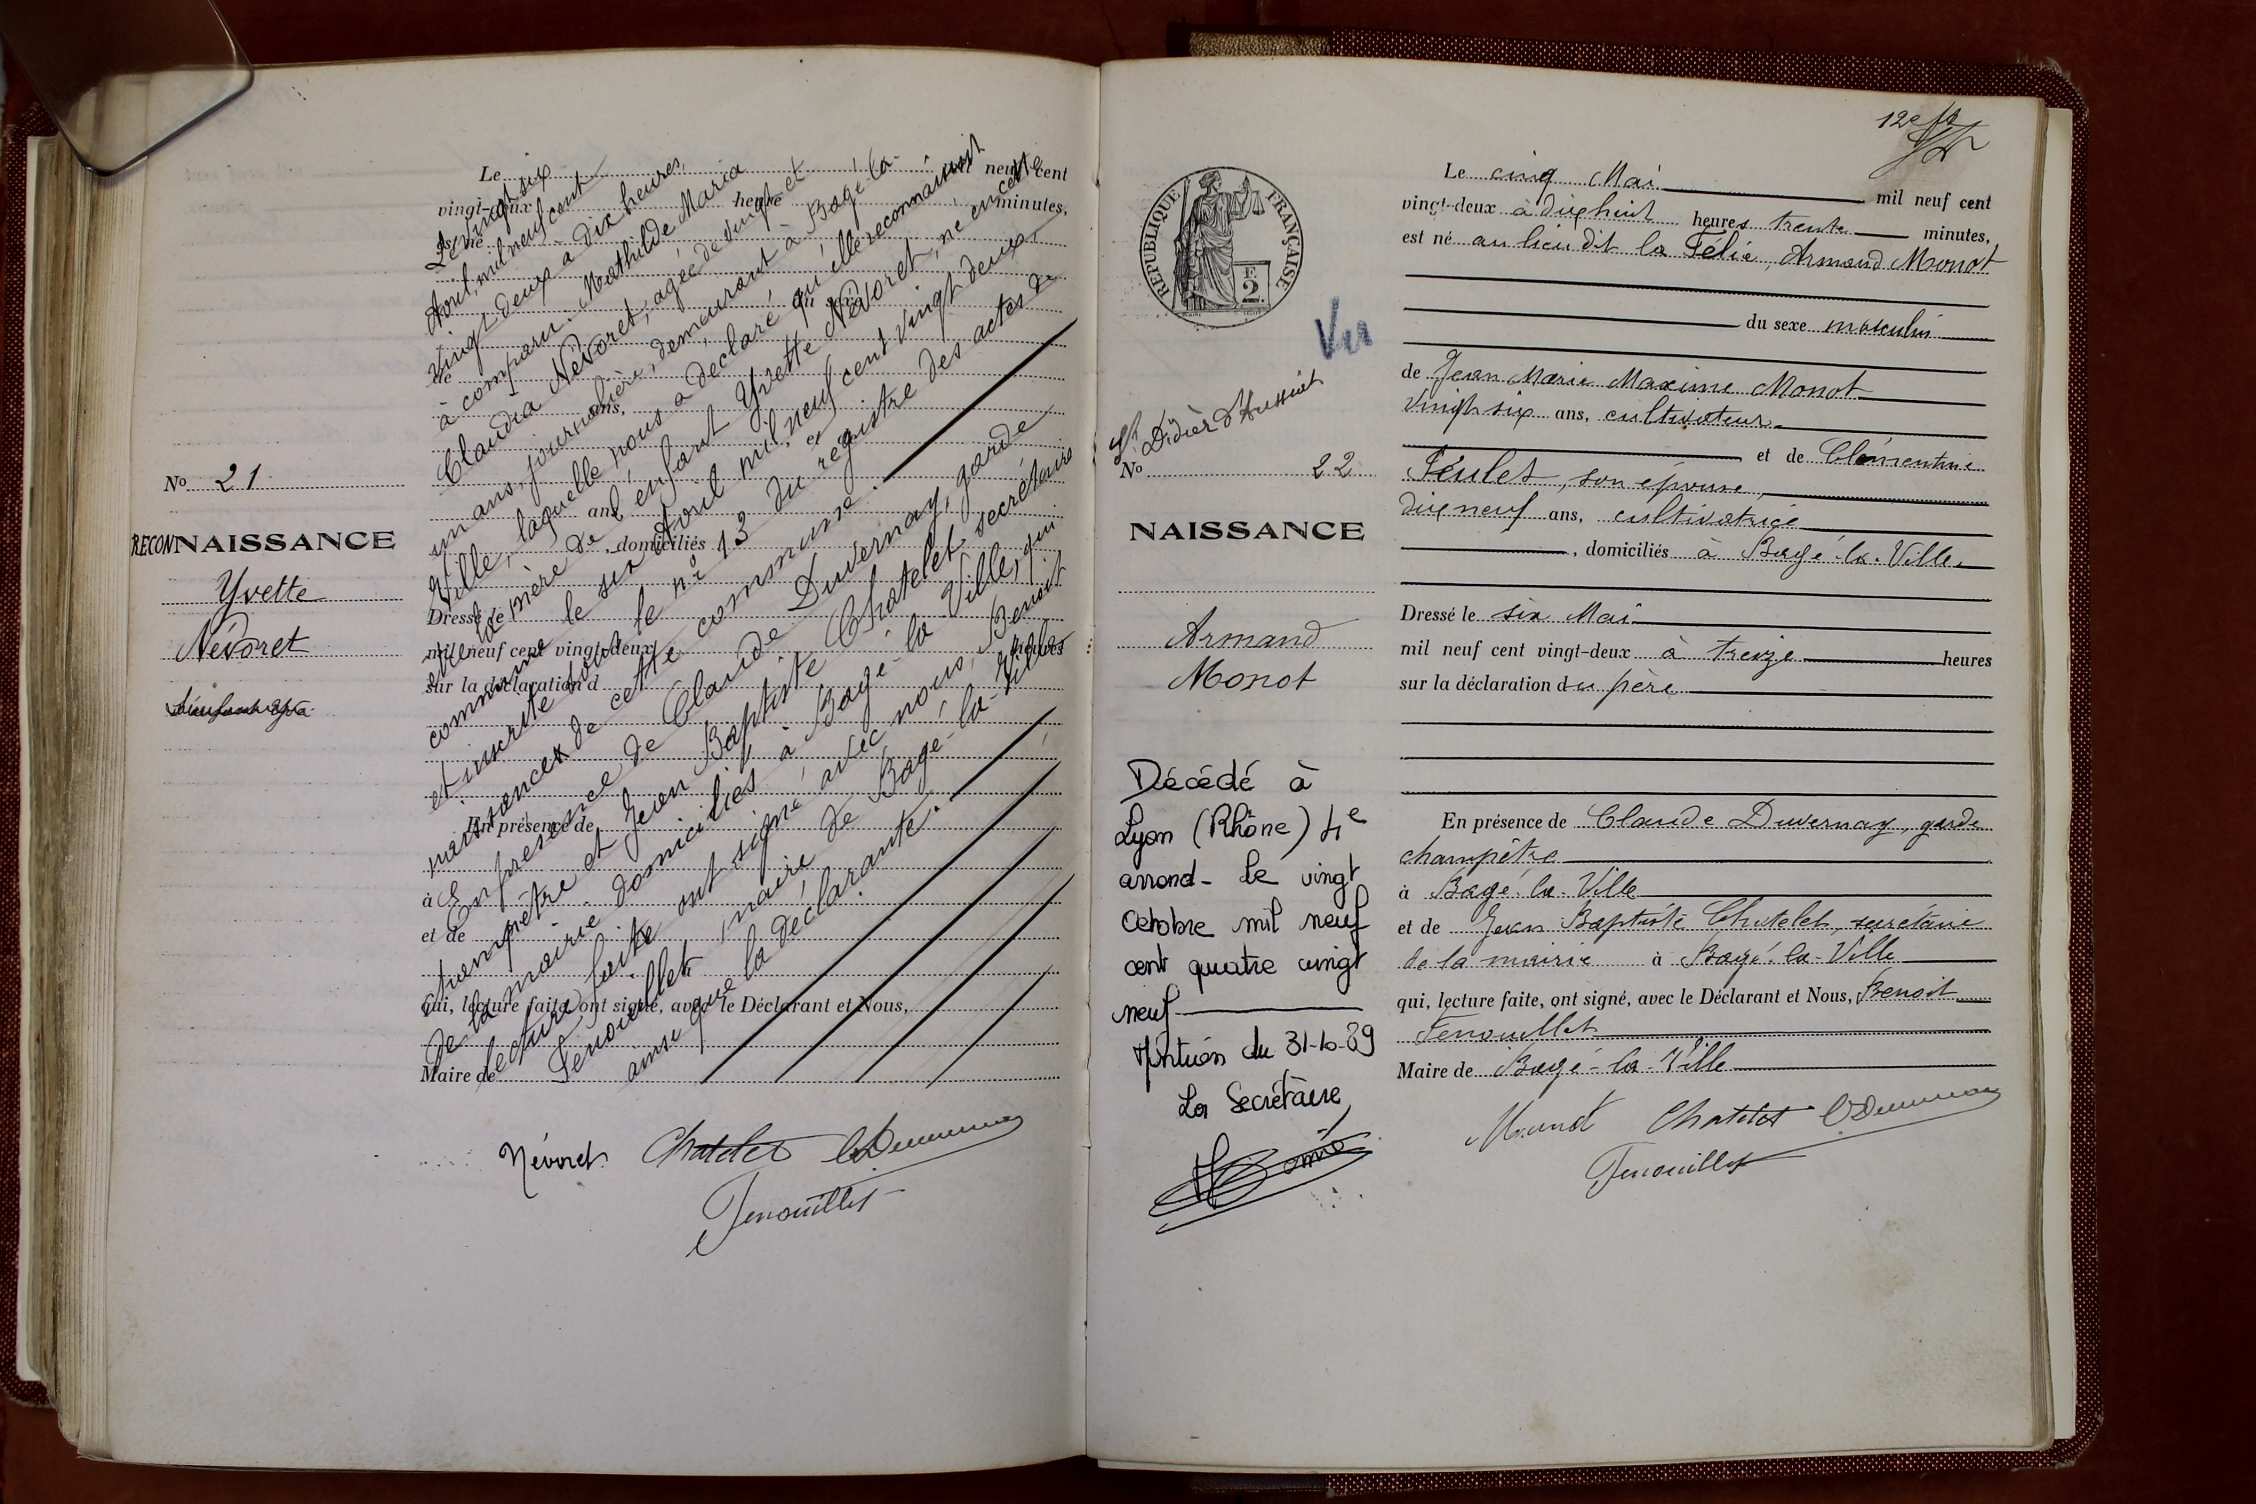 Le mil neuf cent
vingt-deux heure minutes,
est né
du sexe
de
ans,
et
ans
domiciliés
Dressé le
mil neuf cent vingt-deux heures
sur la déclaration d
En présence de
à
et de
qui, lecture faite, ont signé, avec le Déclarant et Nous,
Maire de
No 21
RECONNAISSANCE
Yvette
Névoret
Le vingt six
Avril, mil neuf cent
vingt deux à dix heures,
à comparu. Mathilde Maria
Claudia Névoret, agée de vingt et
un ans, journalière, demeurant à Bagé-la-
Ville, laquelle nous a déclaré qu'elle reconnaissait
être la mère de l'enfant Yvette Névoret, né en cette
commune le six Avril mil neuf cent vingt deux,
et inscrite sous le no 13 du registre des actes de
naissances de cette commune.
En présence de Claude Duvernay, garde
champêtre et Jean Baptiste Chatelet secrétaire
de la mairie domiciliés à Bagé-la-Ville, qui
lecture faite ont signé avec nous, Benoit
Fenouillet, maire de Bagé-la-Ville
ainsi que la déclarante.
Névoret Chatelet Duvernay
Fenouillet
12e
RÉPUBLIQUE FRANÇAISE
E
2
Vu
St Didier d'Aussiat
No 22
NAISSANCE
Armand
Monot
Décédé à
Lyon (Rhône) 4e
arrond- le vingt
octobre mil neuf
cent quatre vingt
neuf
Mention du 31-10-89
La Secrétaire
Le cinq Mai mil neuf cent
vingt-deux à dixhuit heures trente minutes,
est né au lieu dit la Félie, Armand Monot
du sexe masculin
de Jean Marie Maxime Monot
vingt six ans, cultivateur
et de Clémentine
Feulet, son épouse,
dixneuf ans, cultivatrice
, domiciliés à Bagé-la-Ville.
Dressé le six Mai
mil neuf cent vingt-deux à treize heures
sur la déclaration du père
En présence de Claude Duvernay, garde
champêtre
à Bagé-la-Ville
et de Jean Baptiste Chatelet, secrétaire
de la mairie à Bagé-la-Ville
qui, lecture faite, ont signé, avec le Déclarant et Nous, Benoit
Fenouillet
Maire de Bagé-la-Ville
Monot Chatelet Duvernay
Fenouillet